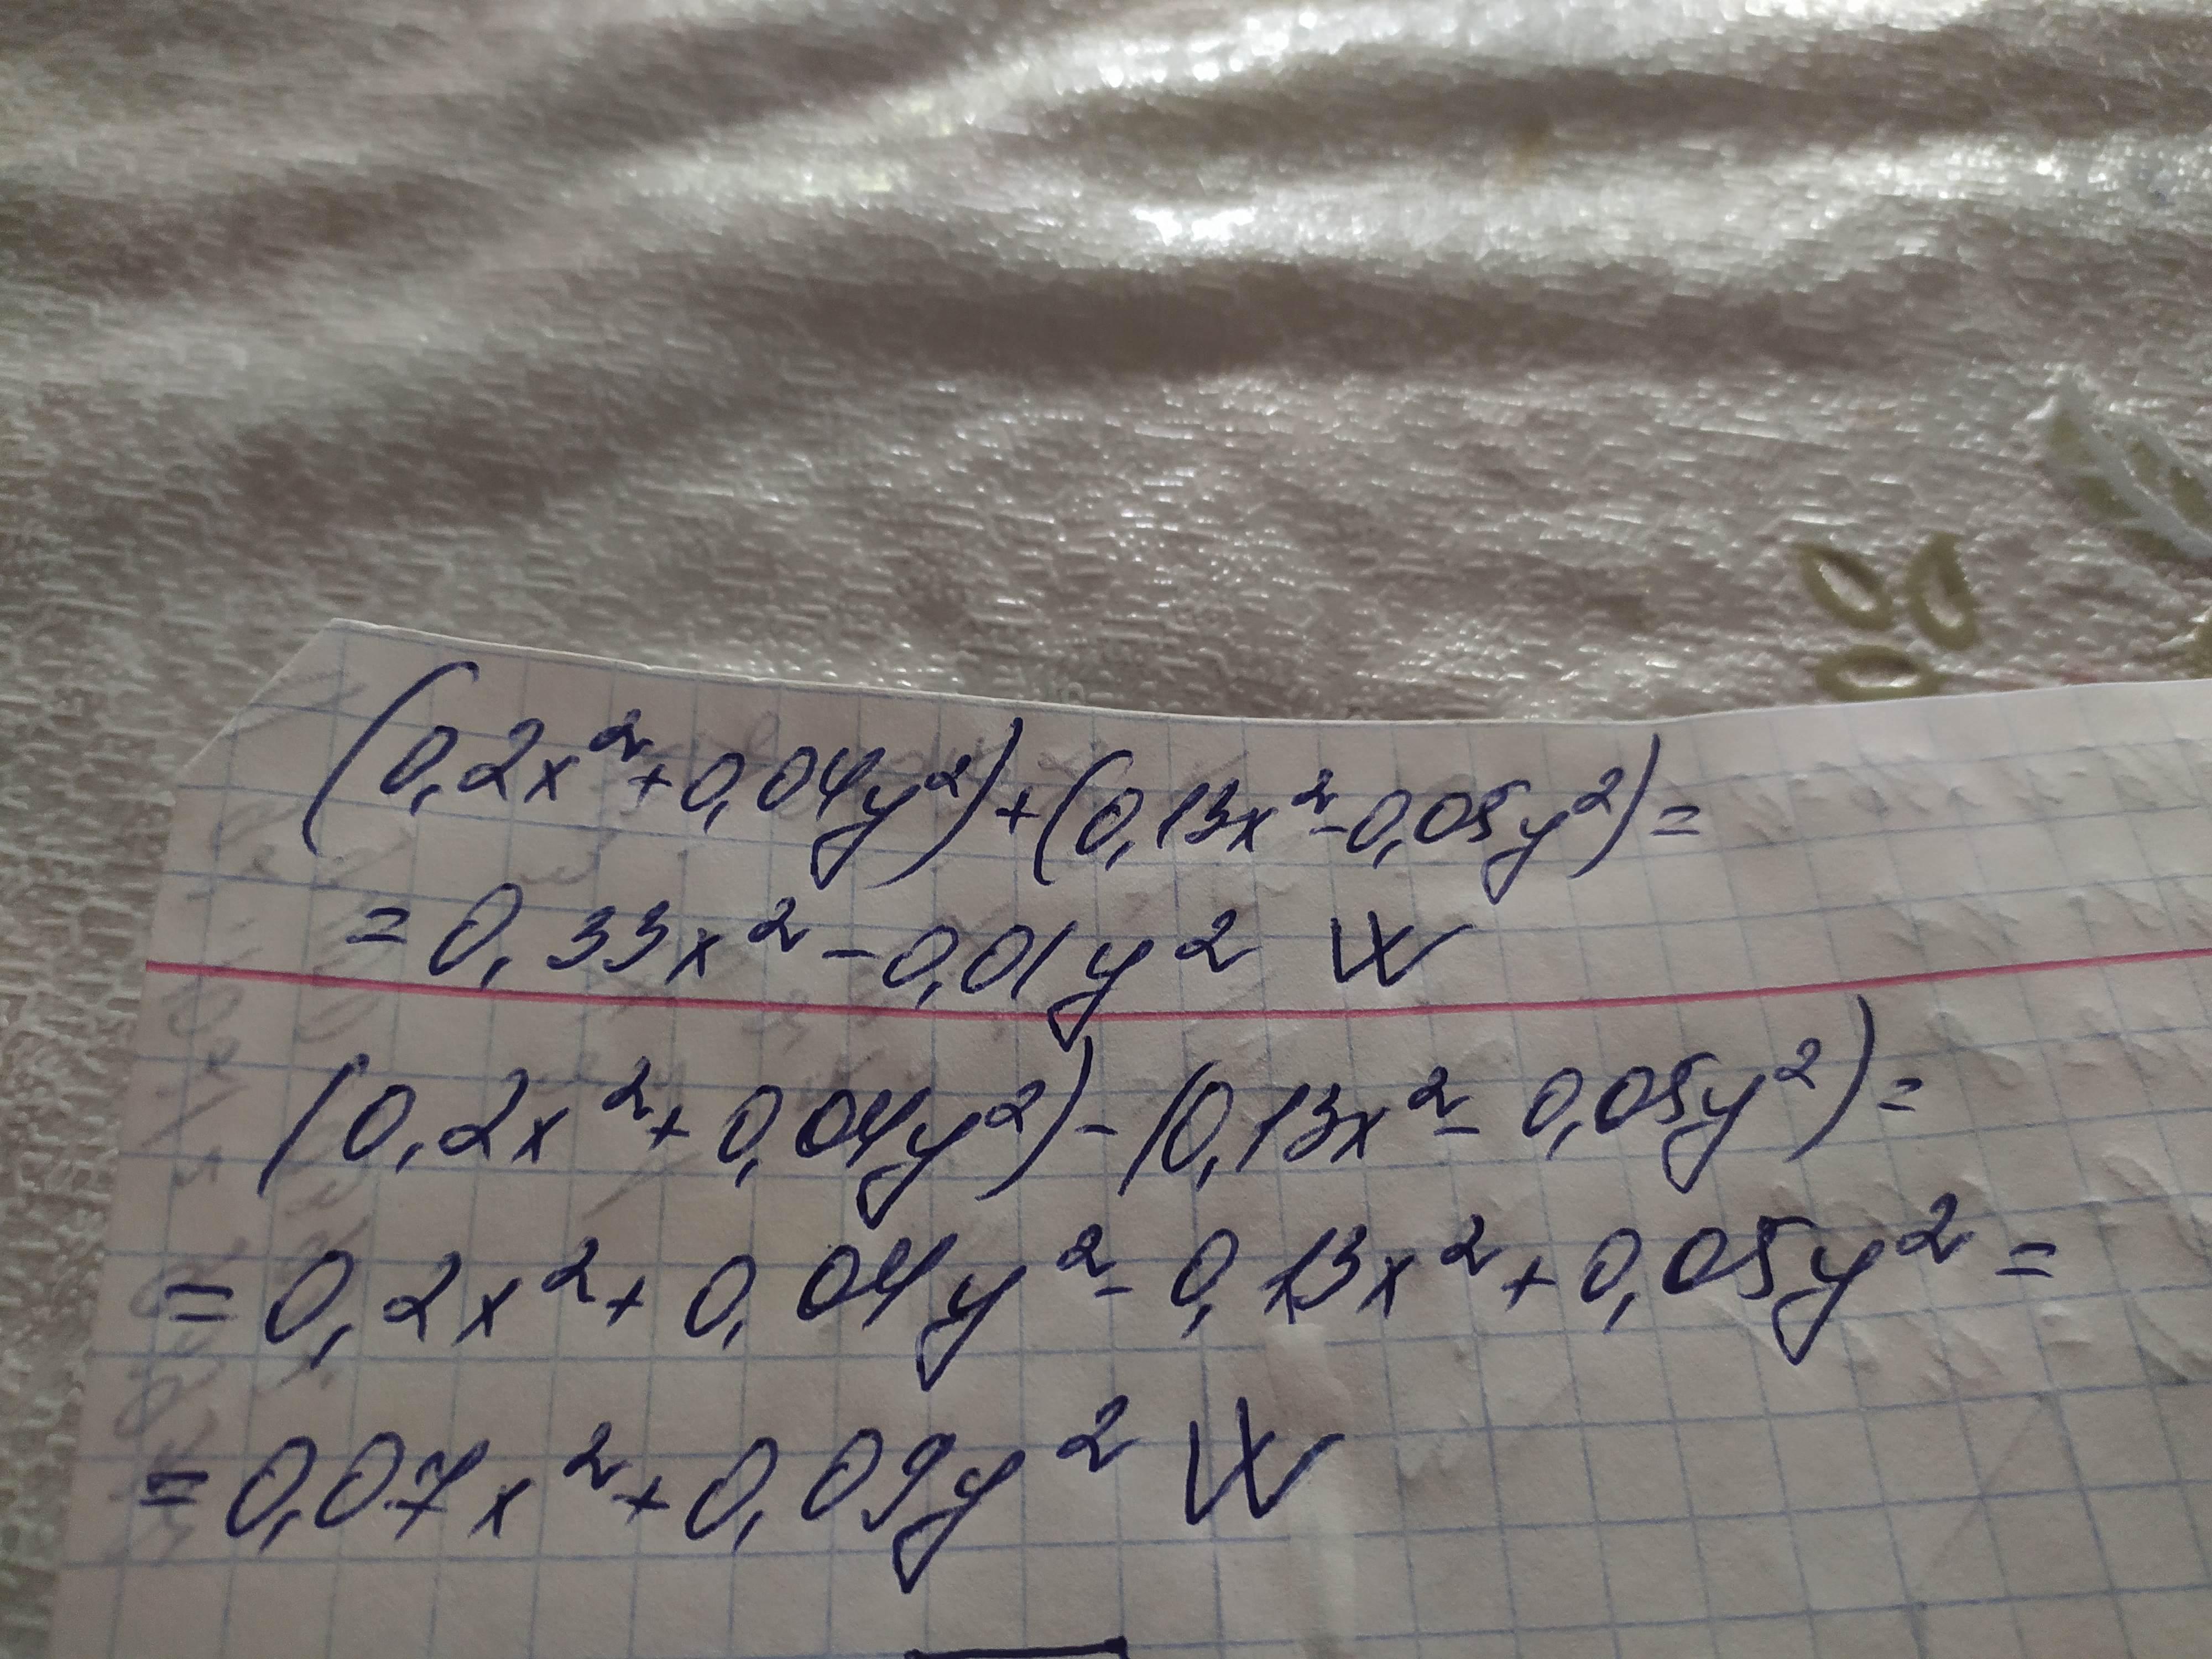 (0,2x²+0,04y²)+(0,13x²-0,05y²)=
=0,33x²-0,01y²
(0,2x²+0,04y²)-(0,13x²-0,05y²)=
=0,2x²+0,04y²-0,13x²+0,05y²=
=0,07x²+0,09y²